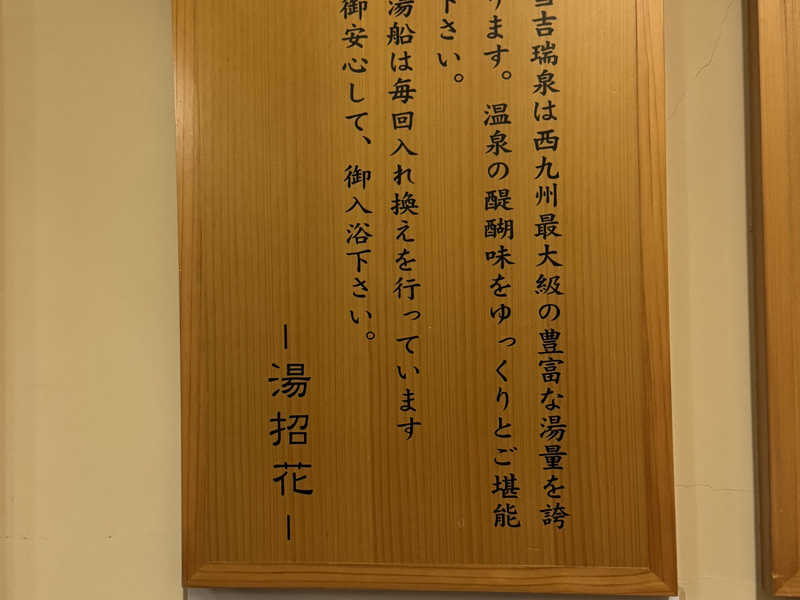 吉瑞泉は西九州最大級の豊富な湯量を誇
ります。温泉の醍醐味をゆっくりとご堪能
下さい。
湯船は毎回入れ換えを行っています
御安心して、御入浴下さい。
―湯招花―